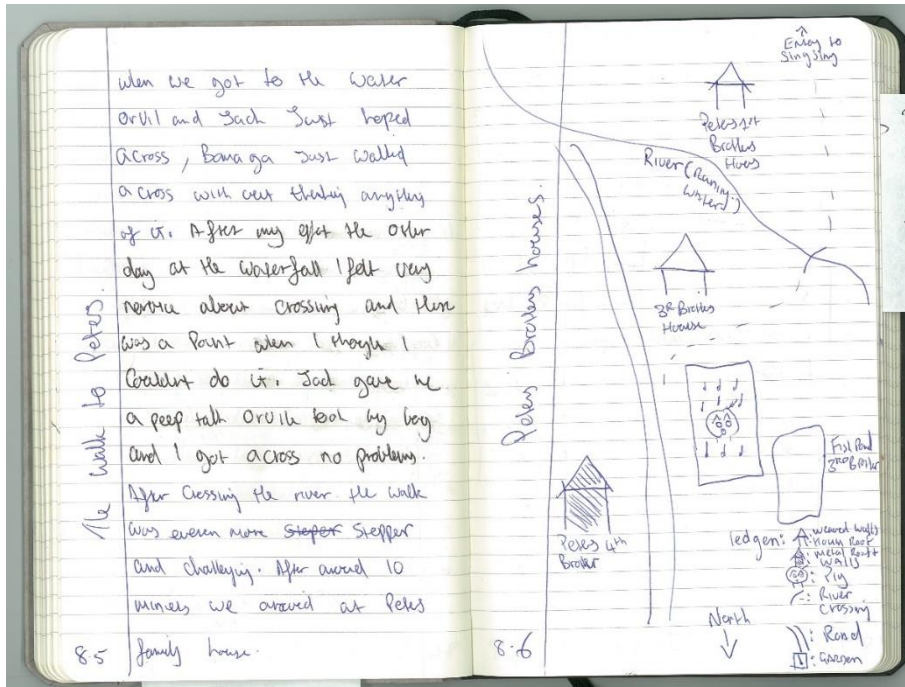 The walk to Peters.
when we got to the water
Orvil and Jack Just hoped
across, Bamaga Just walked
across with out thinking anything
of it. After my effot the other
day at the waterfall I felt very
nervice about crossing and there
was a Point when I thought I
Couldnt do it. Jack gave me
a peep talk Orvile took my bag
and I got across no problems.
After Crossing the river the walk
was eaven more Steper Stepper
and challenging. After around 10
minets we araved at Peters
family house.
85
Peters Brothers houses.
Entry to
Singsing
Peters 1st
Brothers
House
River (Raning
water)
3rd Brothers
House
Fish Pond
3rd Brother
Peters 4th
Brother
ledgen:
: weaved walls
House Roof
: metal Roof +
walls
: Pig
: River
Crossing
: Road
: GARDEN
North
86